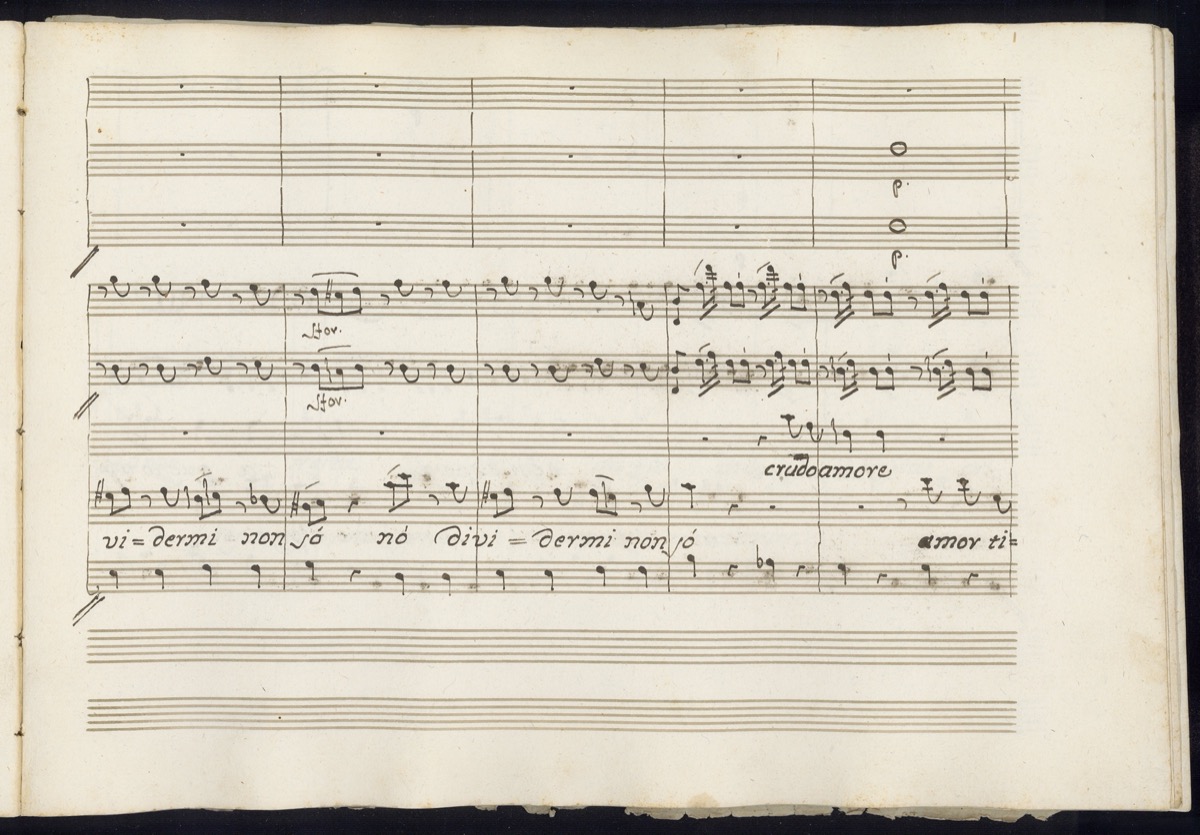 p.
p.
sfor.
sfor.
crudo amore
vi = dermi non só nó divi = dermi non só amor ti =